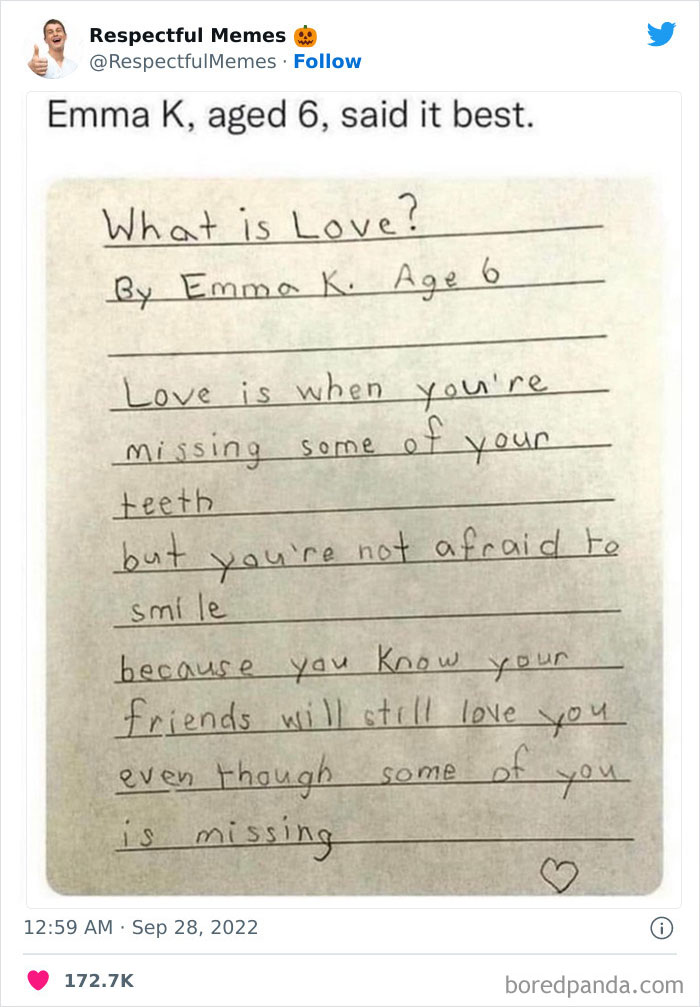 Respectful Memes 🎃
@RespectfulMemes · Follow
Emma K, aged 6, said it best.
What is Love?
By Emma K. Age 6
Love is when you're
missing some of your
teeth
but you're not afraid to
smile
because you know your
friends will still love you
even though some of you
is missing
12:59 AM · Sep 28, 2022
172.7K
boredpanda.com